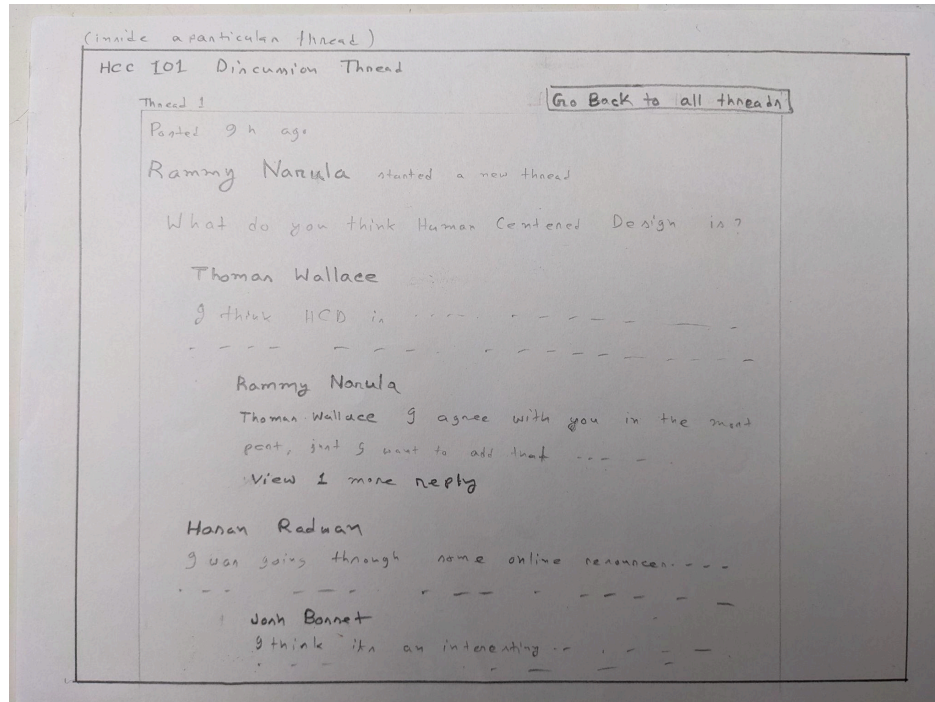 (inside a particular thread)
HCC 101 Discussion Thread
Go Back to all threads
Thread 1
Posted 9 h ago
Rammy Narula started a new thread
What do you think Human Centered Design is?
Thomas Wallace
I think HCD is
Rammy Narula
Thomas Wallace I agree with you in the most
part, just I want to add that
View 1 more reply
Hasan Radwan
I was going through some online resources....
Josh Bonnet
I think its an interesting